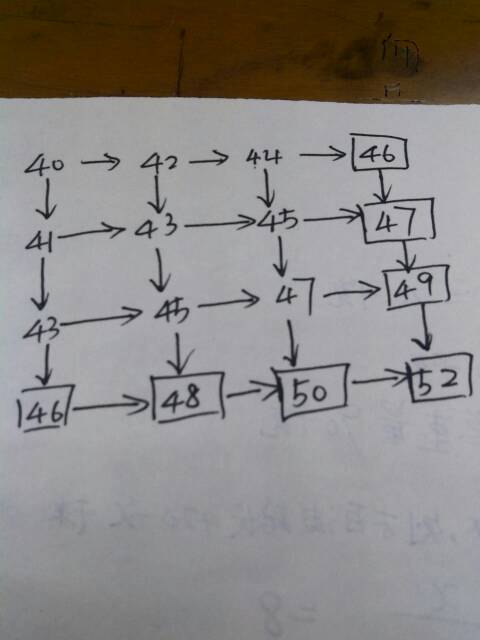 40 → 42 → 44 → 46
41 → 43 → 45 → 47
43 → 45 → 47 → 49
46 → 48 → 50 → 52
=8